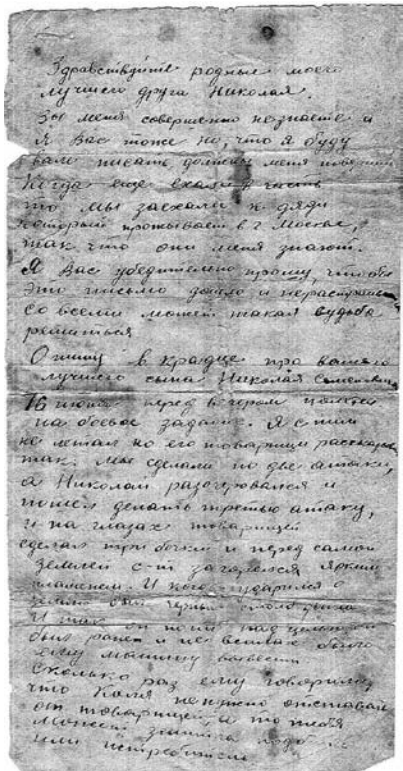 Здравствуйте родные моего
лучшего друга Николая.
Вы меня совершенно незнаете и
я Вас тоже но, что я буду
вам писать должны меня
Когда еще ехали в часть
то мы заехали к дяди
который проживает в г Москве,
так что они меня знают.
Я Вас убедительно прошу, чтобы
это письмо дошло и
со всеми может такая судьба
Опишу в кратце про вашего
лучшего сына Николая Семеновича
16 июня перед вечером
на боевое задание. Я с ним
не летал но его товарищи
так. Мы сделали по две атаки,
а Николай разочеровался и
пошел делать третью атаку,
и на глазах товарищей
сделал три бочки и перед самой
землей с-т загорелся ярким
пламенем. И когда ударился о
землю был черный дыма
И так он погиб над
был ранен и не в силах было
ему машину вывести
Сколько раз ему говорили,
что Коля ненужно отставать
от товарищей а то тебя
может
или истребитель